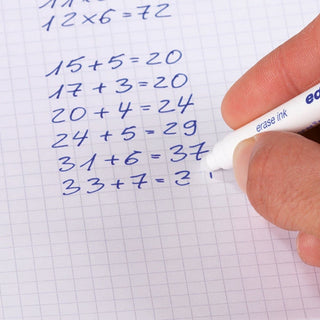 12×6=72
15+5=20
17+3=20
20+4=24
24+5=29
31+6=37
33+7=3
erase ink